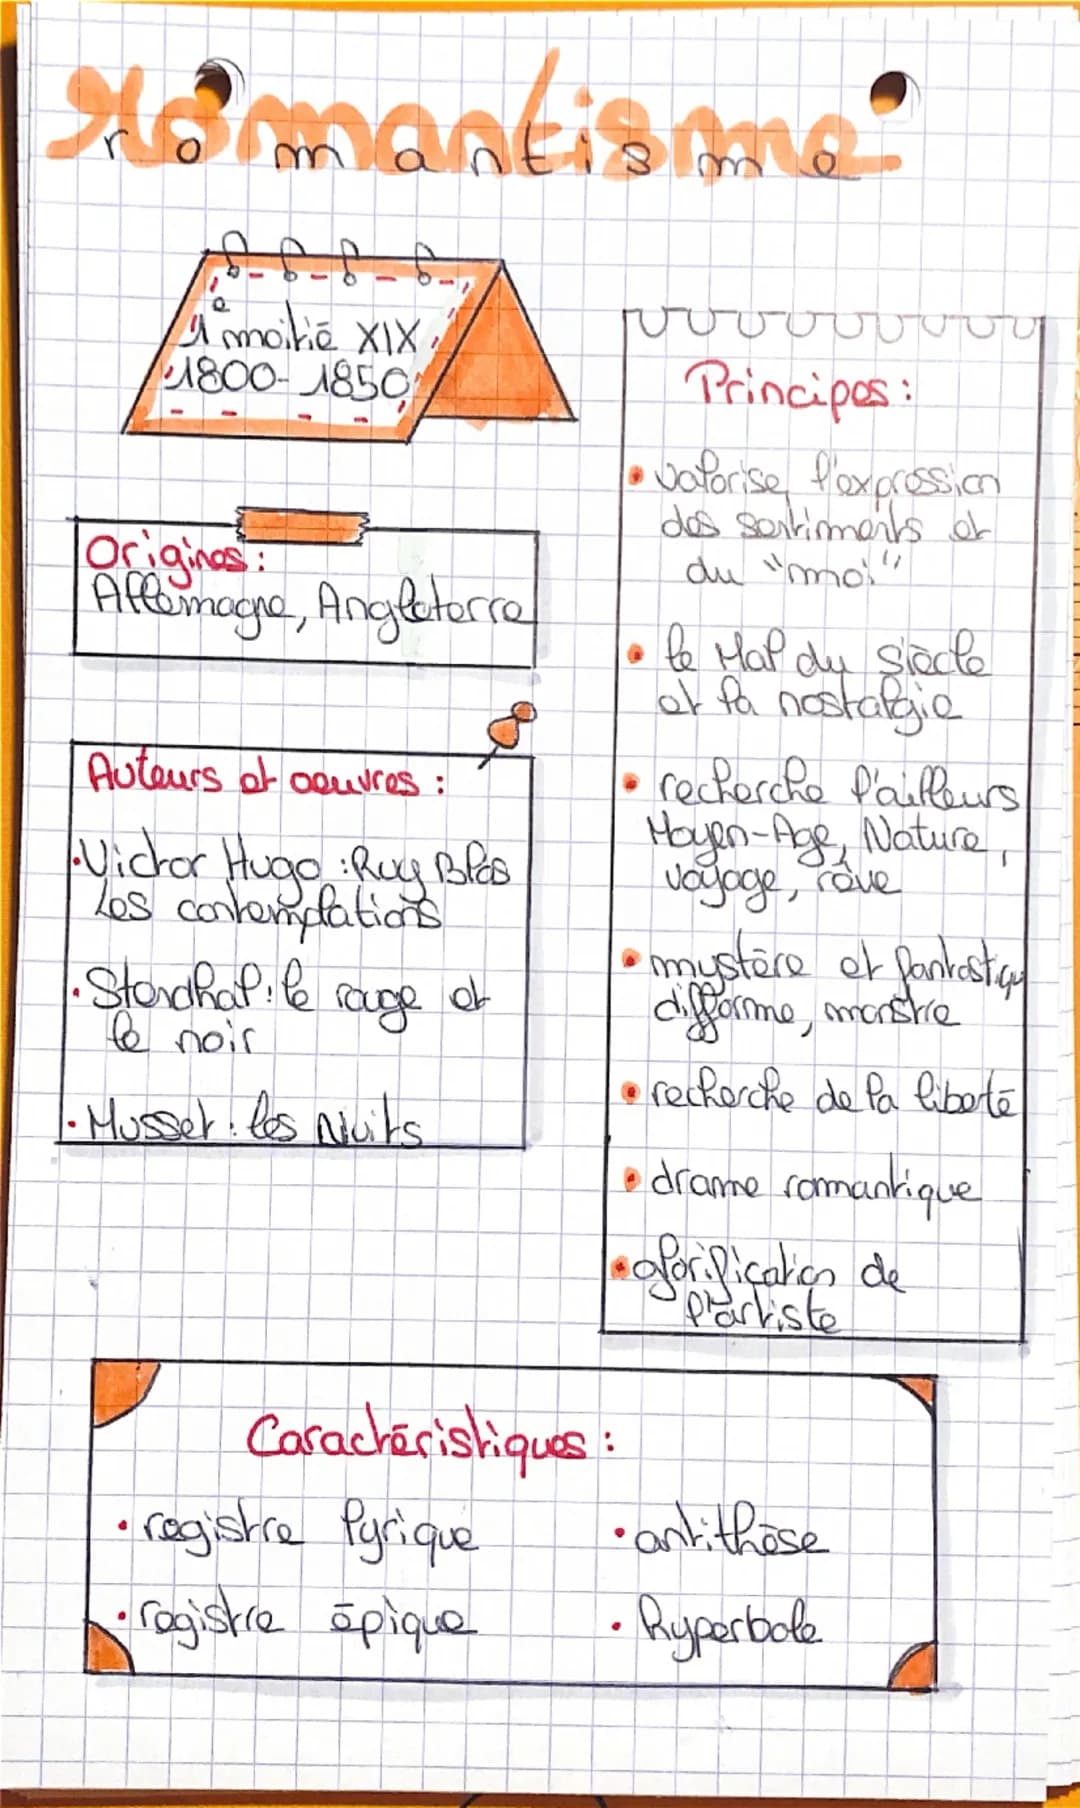 romantisme
romantisme
1e moitié XIX
1800-1850
Origines :
Allemagne, Angleterre
Auteurs et oeuvres :
• Victor Hugo : Ruy Blas
Les contemplations
• Stendhal : le rouge et
le noir
• Musset : les Nuits
Principes :
• valorise l'expression
des sentiments et
du "moi"
• le Mal du siècle
et la nostalgie
• recherche l'ailleurs
Moyen-Age, Nature,
voyage, rêve
• mystère et fantastiqu
difforme, monstre
• recherche de la liberté
• drame romantique
• glorification de
l'artiste
Caractéristiques :
• registre lyrique
• registre épique
• antithèse
• hyperbole